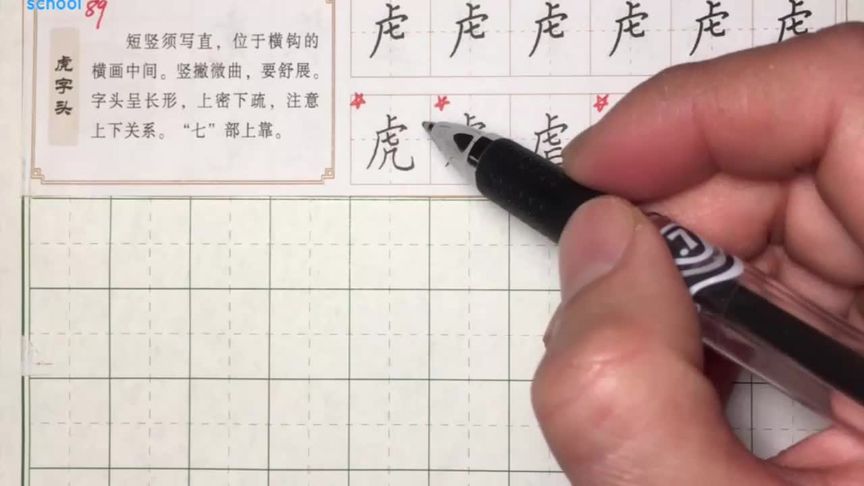 school
89
虎字头
短竖须写直，位于横钩的
横画中间。竖撇微曲，要舒展。
字头呈长形，上密下疏，注意
上下关系。“七”部上靠。
虍 虍 虍 虍 虍 虍
虎